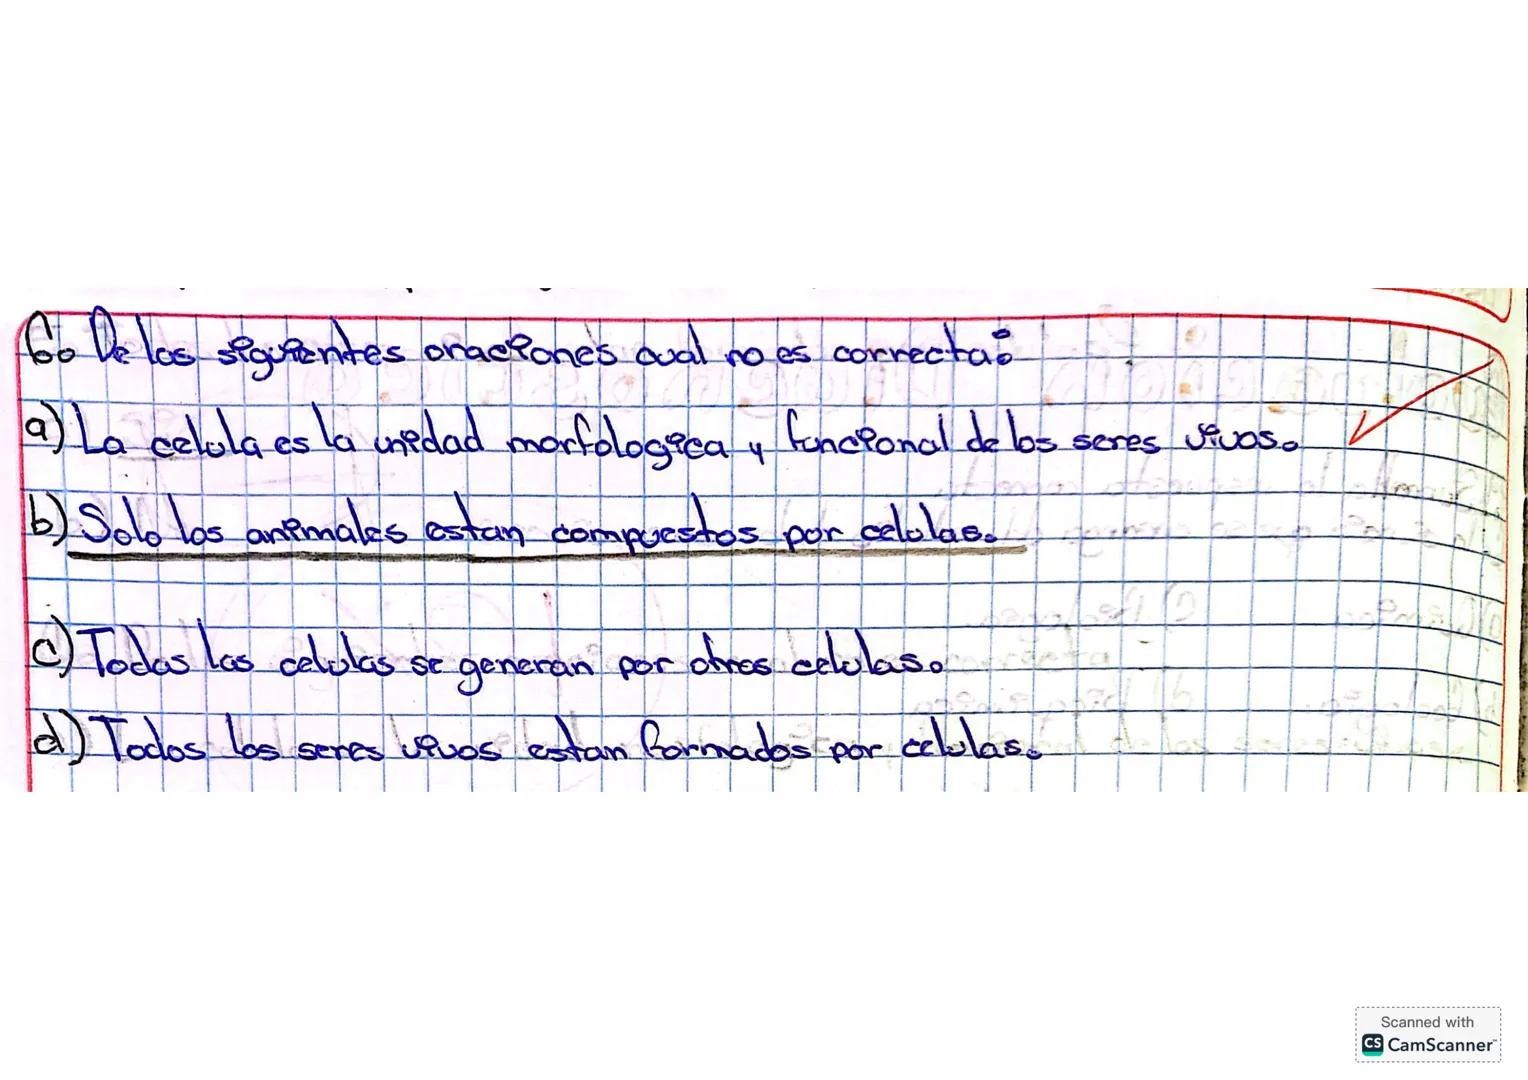 6. De las siguientes oraciones cual no es correcta:
a) La celula es la unidad morfologica y funcional de los seres vivos.
b) Solo los animales estan compuestos por celulas.
c) Todas las celulas se generan por otras celulas.
d) Todos los seres vivos estan formados por celulas.
Scanned with
CS CamScanner